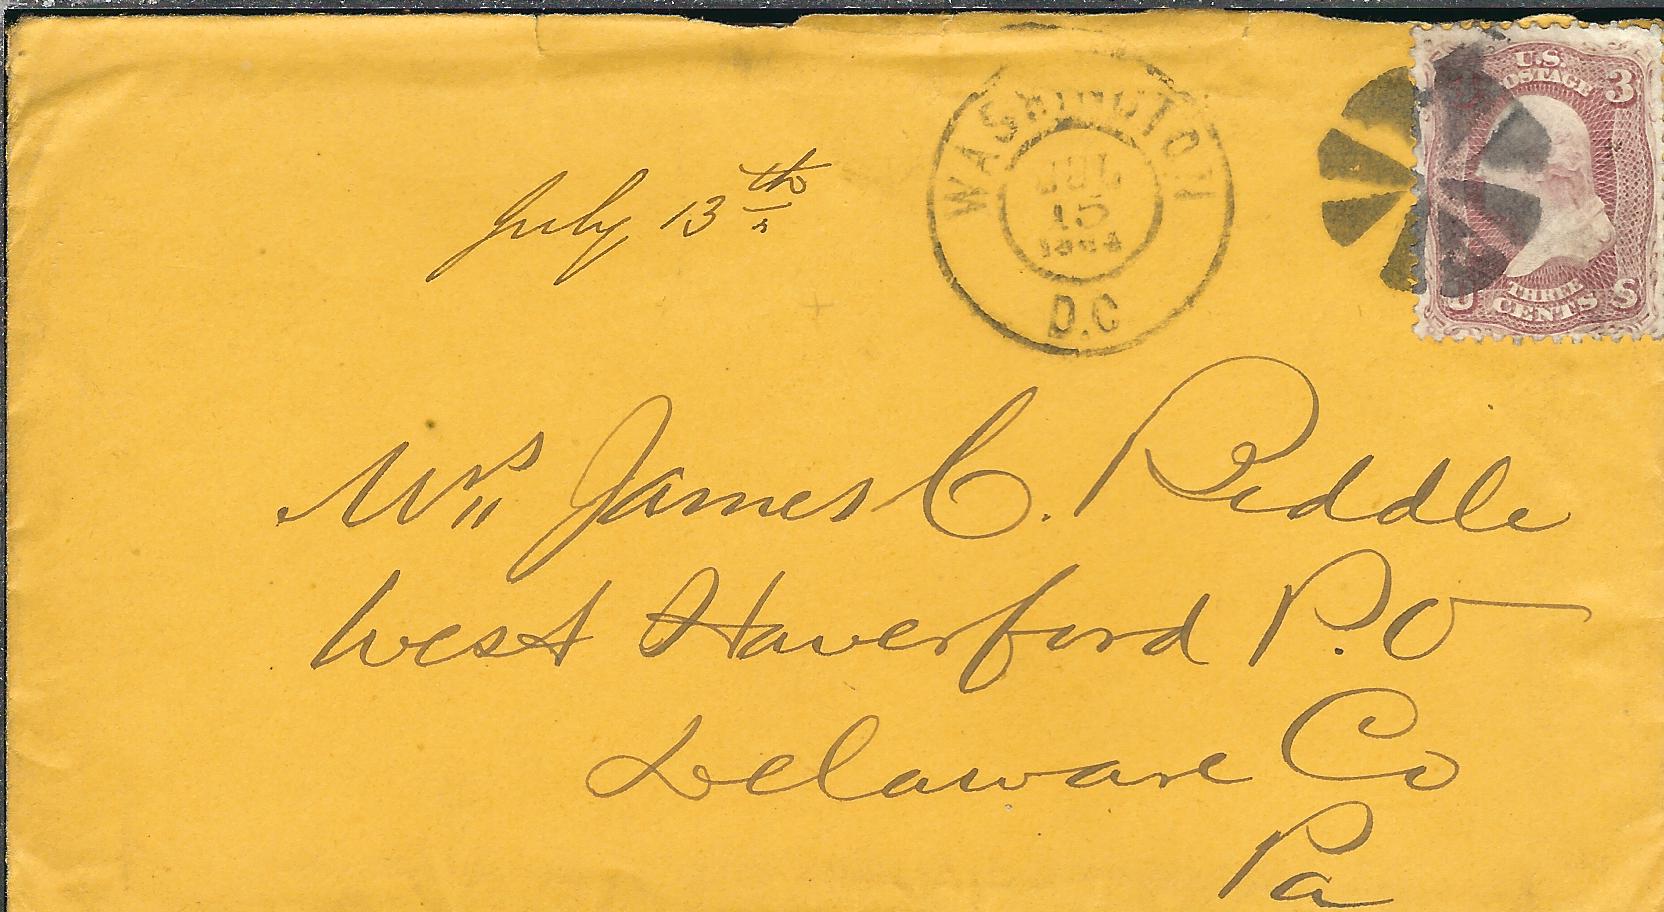 U.S.
POSTAGE
3 3
U THREE S
CENTS
WASHINGTON
JUL
15
D.C
July 13th
Mrs James C. Riddle
West Haverford P.O
Delaware Co
Pa